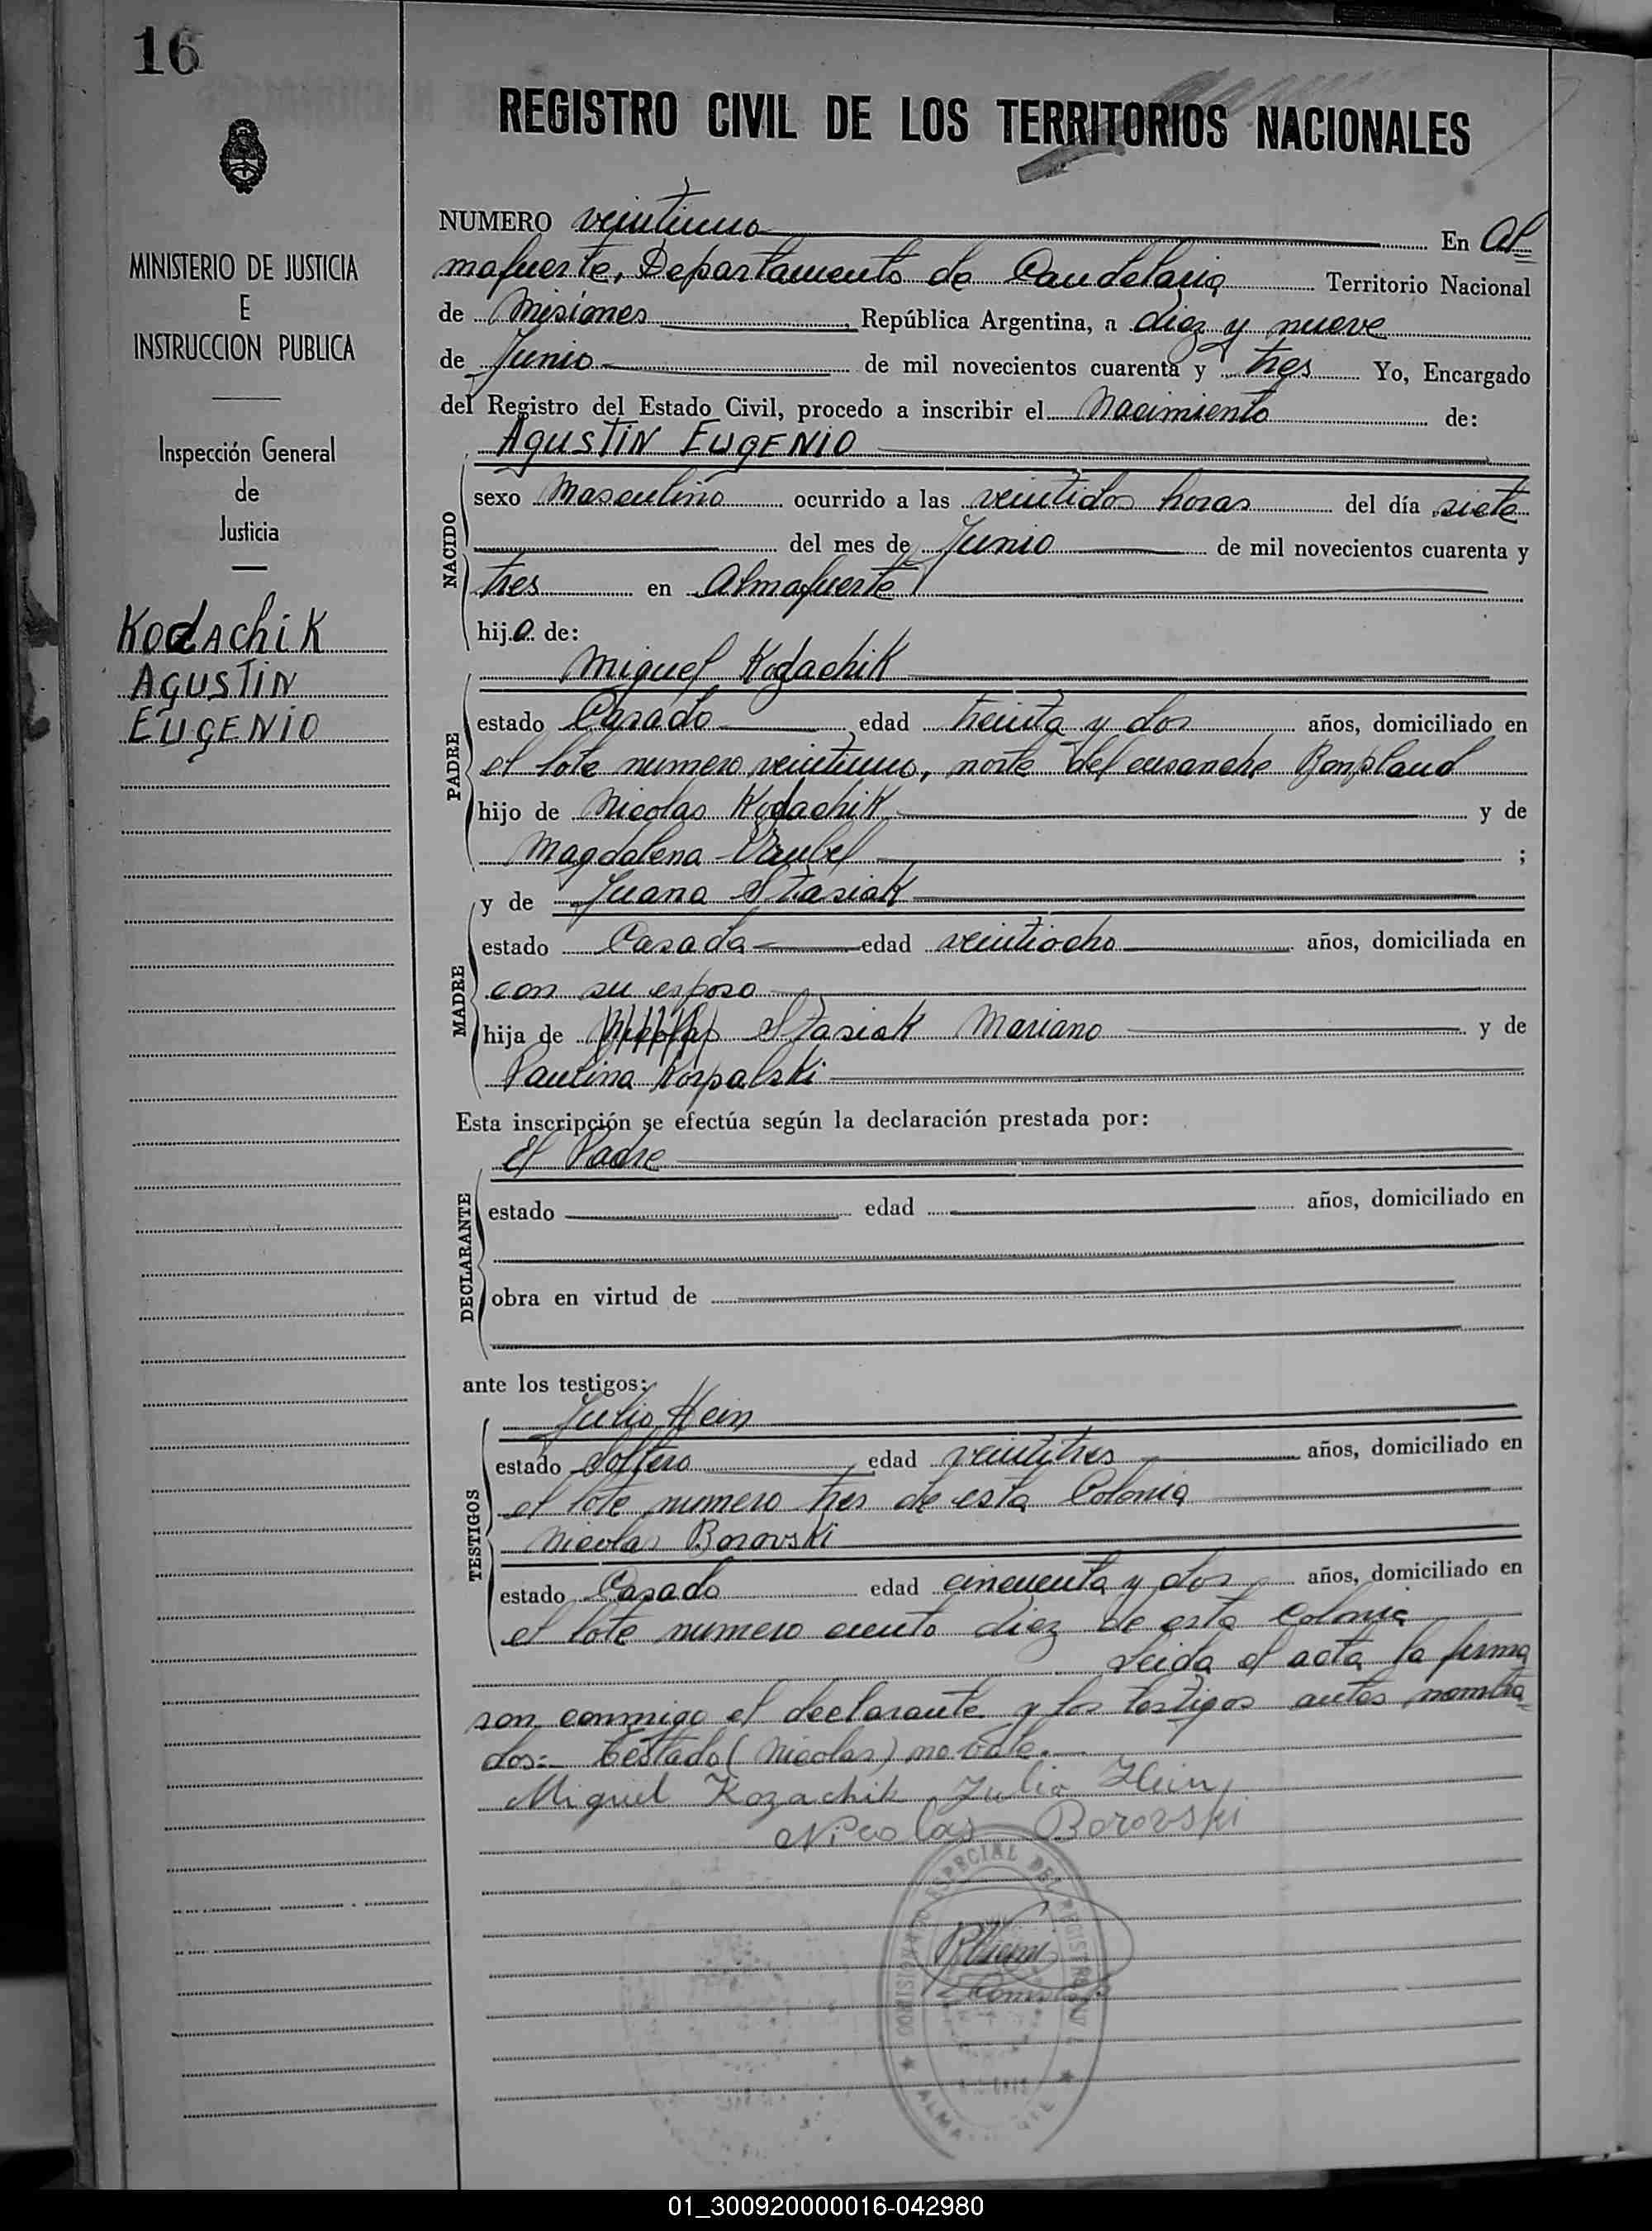 16
REGISTRO CIVIL DE LOS TERRITORIOS NACIONALES
MINISTERIO DE JUSTICIA
E
INSTRUCCION PUBLICA
Inspección General
de
Justicia
Kozachik
AGUSTIN
EUGENIO
NUMERO veintiuno En Al
mafuerte, Departamento de Candelaria Territorio Nacional
de Misiones República Argentina, a diez y nueve
de Junio de mil novecientos cuarenta y tres Yo, Encargado
del Registro del Estado Civil, procedo a inscribir el Nacimiento de:
AGUSTIN EUGENIO
NACIDO
sexo Masculino ocurrido a las veintidos horas del día siete
del mes de Junio de mil novecientos cuarenta y
tres en Almafuerte
hijo de:
PADRE
Miguel Kozachik
estado Casado edad treinta y dos años, domiciliado en
el lote numero veintiuno, norte del ensanche Bonpland
hijo de Nicolas Kozachik y de
Magdalena ;
MADRE
y de Juana Stasiak
estado Casada edad veintiocho años, domiciliada en
con su esposo
hija de Nicolas Stasiak Mariano y de
Paulina Korpalski
Esta inscripción se efectúa según la declaración prestada por:
DECLARANTE
El Padre
estado edad años, domiciliado en
obra en virtud de
ante los testigos:
TESTIGOS
Julio Hein
estado Soltero edad veintitres años, domiciliado en
el lote numero tres de esta Colonia
Nicolas Borovski
estado Casado edad cincuenta y dos años, domiciliado en
el lote numero ciento diez de esta Colonia
Leida el acta la firma
ron conmigo el declarante y los testigos antes nombra
dos:- Testado (Nicolas) no vale.
Miguel Kozachik Julio Hein
Nicolas Borovski
ESPECIAL DEL REGISTRO
01_300920000016-042980